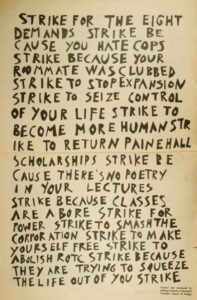 STRIKE FOR THE EIGHT
DEMANDS STRIKE BE
CAUSE YOU HATE COPS
STRIKE BECAUSE YOUR
ROOMMATE WAS CLUBBED
STRIKE TO STOP EXPANSION
STRIKE TO SEIZE CONTROL
OF YOUR LIFE STRIKE TO
BECOME MORE HUMAN STR
IKE TO RETURN PAINE HALL
SCHOLARSHIPS STRIKE BE
CAUSE THERE'S NO POETRY
IN YOUR LECTURES
STRIKE BECAUSE CLASSES
ARE A BORE STRIKE FOR
POWER STRIKE TO SMASH THE
CORPORATION STRIKE TO MAKE
YOURSELF FREE STRIKE TO
ABOLISH ROTC STRIKE BECAUSE
THEY ARE TRYING TO SQUEEZE
THE LIFE OUT OF YOU STRIKE